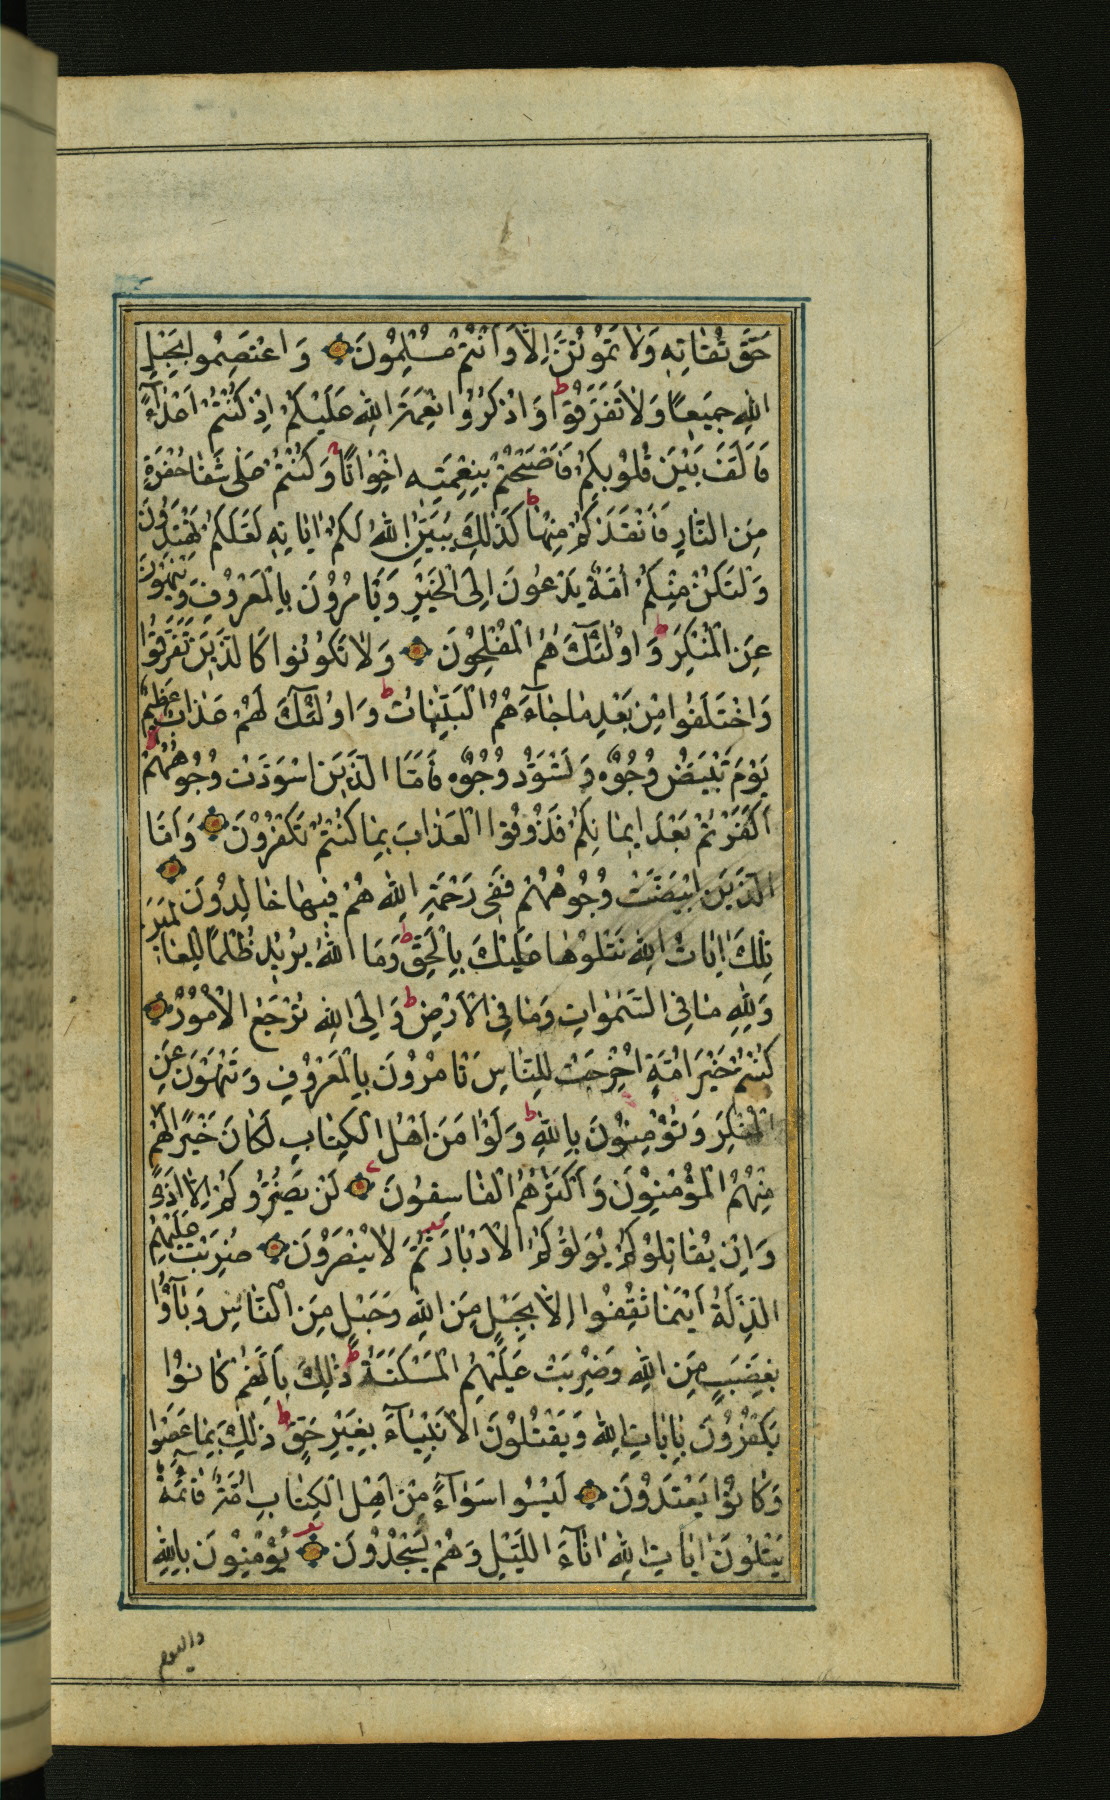 حَقَّ تُقٰاتِهٖ وَلٰا تَمُوتُنَّ اِلَّا وَاَنْتُمْ مُسْلِمُونَ وَاعْتَصِمُوا بِحَبْلِ
اللّٰهِ جَمِيعًا وَلٰا تَفَرَّقُوا ط وَاذْكُرُوا نِعْمَةَ اللّٰهِ عَلَيْكُمْ اِذْ كُنْتُمْ اَعْدٰٓاءً
فَاَلَّفَ بَيْنَ قُلُوبِكُمْ فَاَصْبَحْتُمْ بِنِعْمَتِهٖ اِخْوٰانًا وَكُنْتُمْ عَلٰى شَفٰا حُفْرَةٍ
مِنَ النّٰارِ فَاَنْقَذَكُمْ مِنْهٰا ط كَذٰلِكَ يُبَيِّنُ اللّٰهُ لَكُمْ اٰيٰاتِهٖ لَعَلَّكُمْ تَهْتَدُونَ
وَلْتَكُنْ مِنْكُمْ اُمَّةٌ يَدْعُونَ اِلَى الْخَيْرِ وَيَاْمُرُونَ بِالْمَعْرُوفِ وَيَنْهَوْنَ
عَنِ الْمُنْكَرِ ط وَاُولٰٓئِكَ هُمُ الْمُفْلِحُونَ وَلٰا تَكُونُوا كَالَّذِينَ تَفَرَّقُوا
وَاخْتَلَفُوا مِنْ بَعْدِ مٰا جٰٓاءَهُمُ الْبَيِّنٰاتُ ط وَاُولٰٓئِكَ لَهُمْ عَذٰابٌ عَظِيمٌ
يَوْمَ تَبْيَضُّ وُجُوهٌ وَتَسْوَدُّ وُجُوهٌ فَاَمَّا الَّذِينَ اسْوَدَّتْ وُجُوهُهُمْ
اَكَفَرْتُمْ بَعْدَ اِيمٰانِكُمْ فَذُوقُوا الْعَذٰابَ بِمٰا كُنْتُمْ تَكْفُرُونَ وَاَمَّا
الَّذِينَ ابْيَضَّتْ وُجُوهُهُمْ فَفِى رَحْمَةِ اللّٰهِ هُمْ فِيهٰا خٰالِدُونَ
تِلْكَ اٰيٰاتُ اللّٰهِ نَتْلُوهٰا عَلَيْكَ بِالْحَقِّ ط وَمَا اللّٰهُ يُرِيدُ ظُلْمًا لِلْعٰالَمِينَ
وَلِلّٰهِ مٰا فِى السَّمٰوٰاتِ وَمٰا فِى الْاَرْضِ ط وَاِلَى اللّٰهِ تُرْجَعُ الْاُمُورُ
كُنْتُمْ خَيْرَ اُمَّةٍ اُخْرِجَتْ لِلنّٰاسِ تَاْمُرُونَ بِالْمَعْرُوفِ وَتَنْهَوْنَ عَنِ
الْمُنْكَرِ وَتُؤْمِنُونَ بِاللّٰهِ ط وَلَوْ اٰمَنَ اَهْلُ الْكِتٰابِ لَكٰانَ خَيْرًا لَهُمْ
مِنْهُمُ الْمُؤْمِنُونَ وَاَكْثَرُهُمُ الْفٰاسِقُونَ لَنْ يَضُرُّوكُمْ اِلَّا اَذًى
وَاِنْ يُقٰاتِلُوكُمْ يُوَلُّوكُمُ الْاَدْبٰارَ ثُمَّ لٰا يُنْصَرُونَ ضُرِبَتْ عَلَيْهِمُ
الذِّلَّةُ اَيْنَمٰا ثُقِفُوا اِلَّا بِحَبْلٍ مِنَ اللّٰهِ وَحَبْلٍ مِنَ النّٰاسِ وَبٰٓاؤُا
بِغَضَبٍ مِنَ اللّٰهِ وَضُرِبَتْ عَلَيْهِمُ الْمَسْكَنَةُ ط ذٰلِكَ بِاَنَّهُمْ كٰانُوا
يَكْفُرُونَ بِاٰيٰاتِ اللّٰهِ وَيَقْتُلُونَ الْاَنْبِيٰٓاءَ بِغَيْرِ حَقٍّ ط ذٰلِكَ بِمٰا عَصَوْا
وَكٰانُوا يَعْتَدُونَ لَيْسُوا سَوٰٓاءً مِنْ اَهْلِ الْكِتٰابِ اُمَّةٌ قٰٓائِمَةٌ
يَتْلُونَ اٰيٰاتِ اللّٰهِ اٰنٰٓاءَ اللَّيْلِ وَهُمْ يَسْجُدُونَ يُؤْمِنُونَ بِاللّٰهِ
واليوم